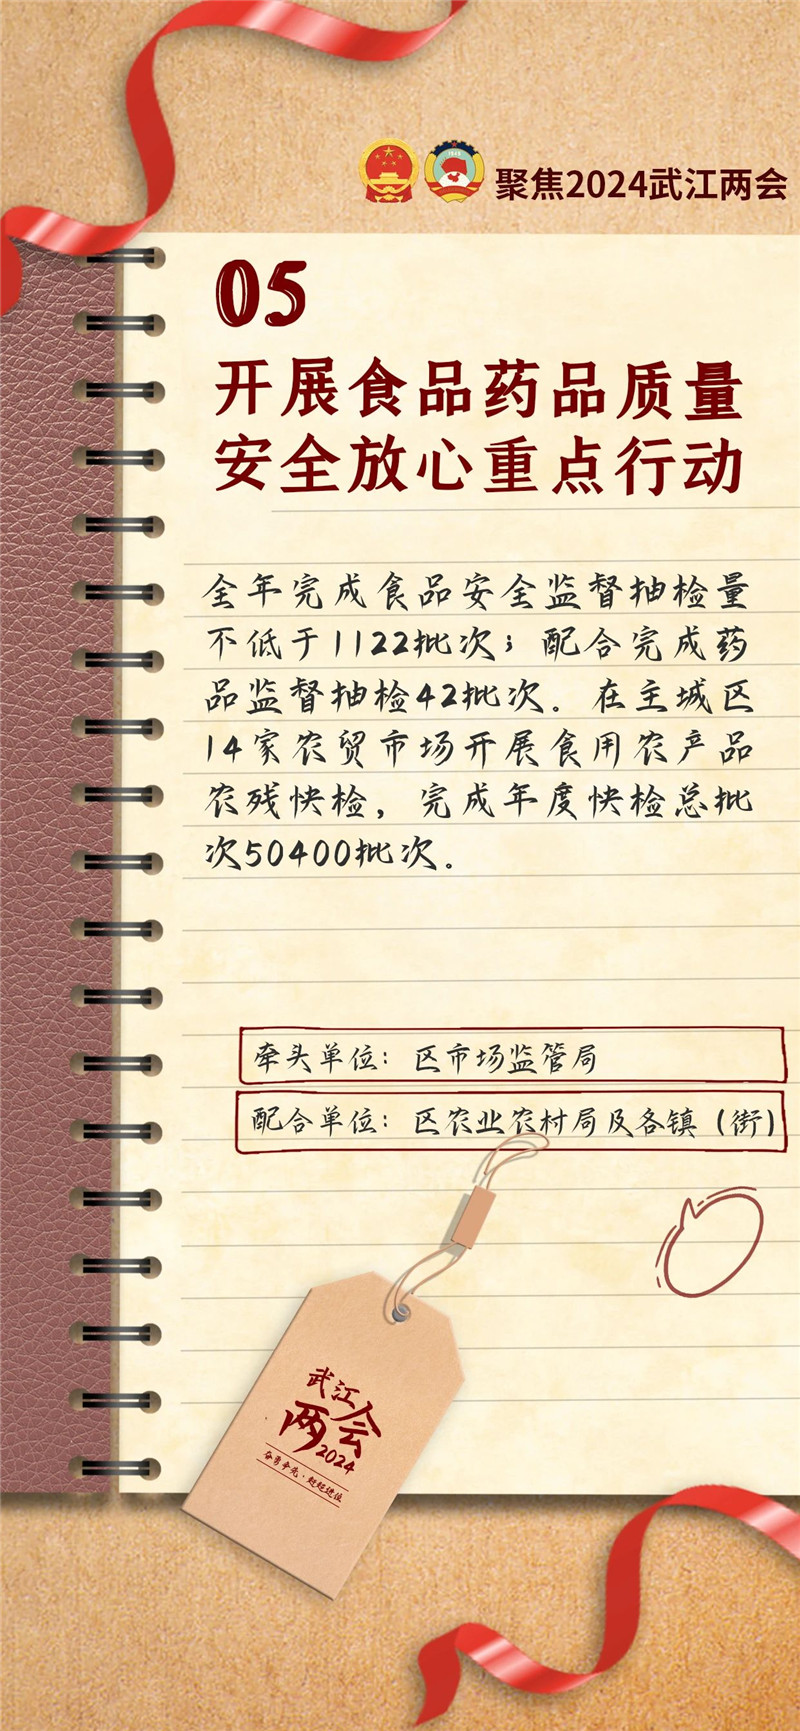 聚焦2024武江两会
05
开展食品药品质量
安全放心重点行动
全年完成食品安全监督抽检量
不低于1122批次；配合完成药
品监督抽检42批次。在主城区
14家农贸市场开展食用农产品
农残快检，完成年度快检总批
次50400批次。
牵头单位：区市场监管局
配合单位：区农业农村局及各镇（街）
武江
两会
2024
奋勇争先·赶超进位